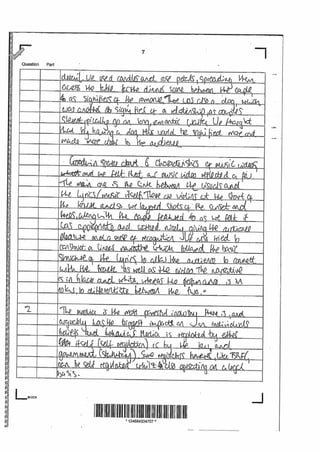 7
Question Part
detail, we used candles and rose petals, spreading them
across the table for the dinner scene between the couple
to as signifiers of the romance. There was also a dog, which
was another to signifies of a relationship as couples
stereotypically go on long, romantic walks. We thought
that by having a dog this would be signified more and
made more clear to the audience.
Goodwin states that 6 characteristics of music videos
and we felt that our music video reflected a few.
The main one is the link between the visuals and
the lyrics/music itself. There are violins at the start of
the track and so we layered shots of the sunset and
trees, along with the couple featured to as we felt it
was appropriate and worked nicely giving the audience
pleasure and a sense of recognition. We also tried to
construct a linear narrative which followed the basic
structure of the lyrics to allow the audience to connect
with the track as well as the video. The narrative
is in black and white, whereas the performance is in
colour, to differentiate between the two.
2
The media is the most powerful industry there is, and
arguably has the biggest impacts on an individuals
beliefs and behaviour. Media is regulated by either
itself (self regulation) or by the law and
government (statutory). Some regulators however, like BBFC,
can be self regulated whilst also operating on a legal
basis.